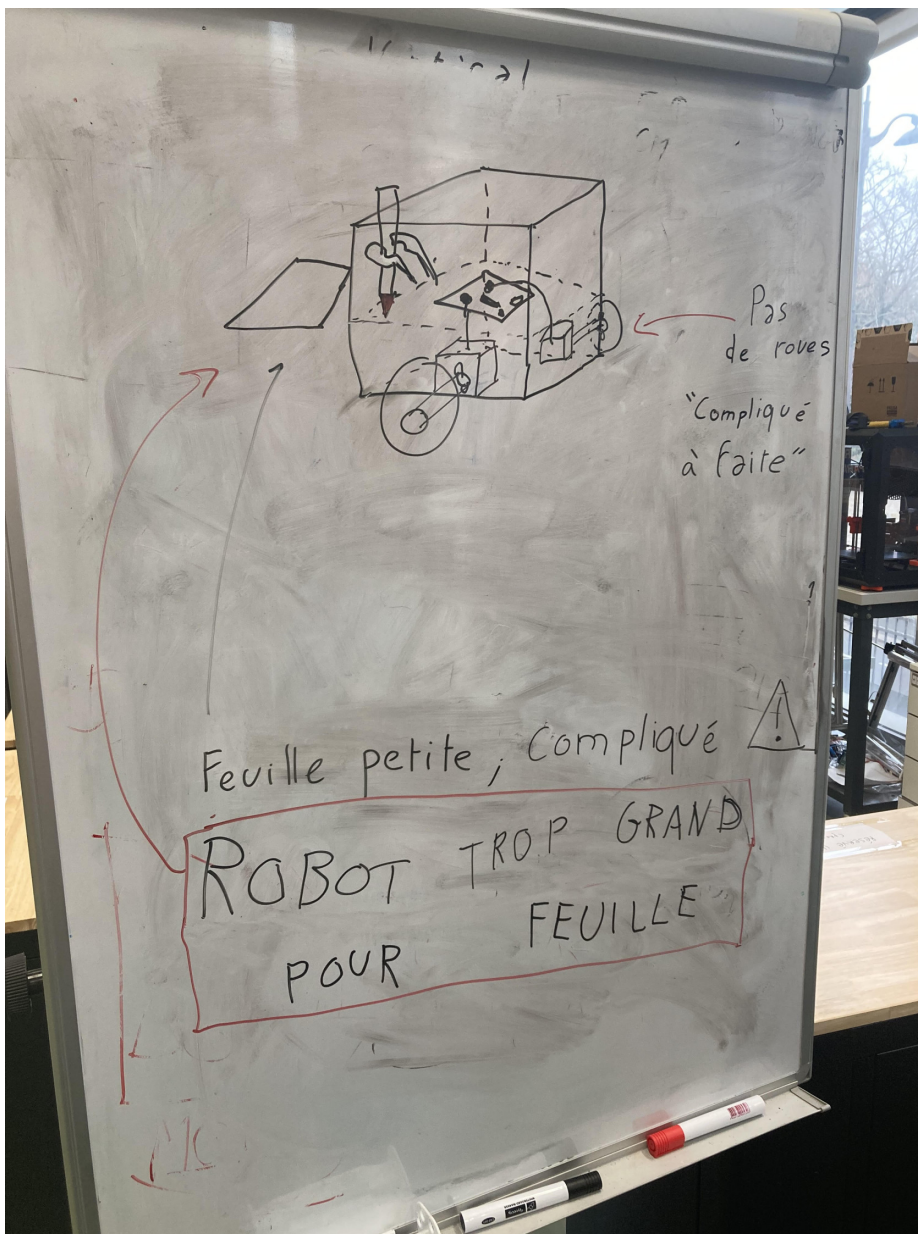 Pas
de roues
"Compliqué
à faite"
Feuille petite, Compliqué
!
ROBOT TROP GRAND
POUR FEUILLE